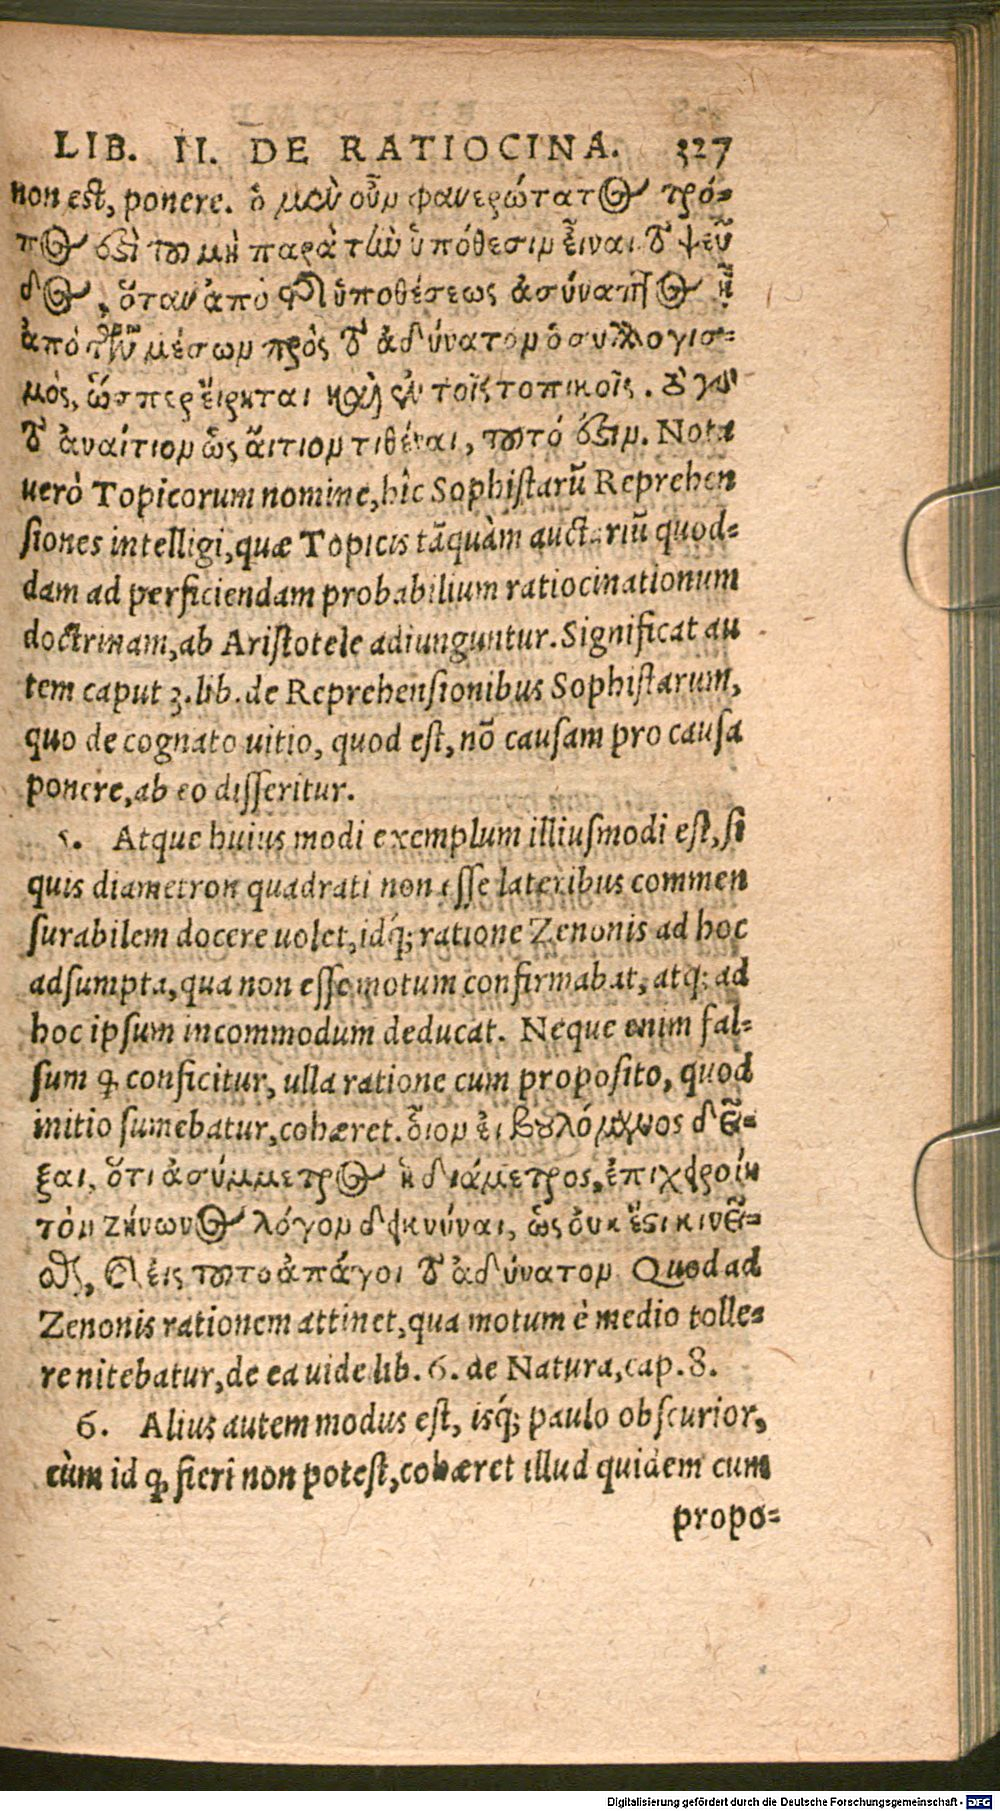 LIB. II. DE RATIOCINA. 327
non est, ponere. ὁ μὲν οὖν φανερώτατος τρό-
πος ἐστὶ τοῦ μὴ παρὰ τὴν ὑπόθεσιν εἶναι τὸ ψεῦ
δος, ὅταν ἀπὸ τῆς ὑποθέσεως ἀσύναπτος ᾖ
ἀπὸ τῶν μέσων πρὸς τὸ ἀδύνατον ὁ συλλογισ-
μός, ὥσπερ εἴρηται καὶ ἐν τοῖς τοπικοῖς. τὸ γὰρ
τὸ ἀναίτιον ὡς αἴτιον τιθέναι, τοῦτό ἐστιν. Nota
uerò Topicorum nomine, hîc Sophistarũ Reprehen
siones intelligi, quæ Topicis tãquàm auctariũ quod-
dam ad perficiendam probabilium ratiocinationum
doctrinam, ab Aristotele adiunguntur. Significat au
tem caput 3. lib. de Reprehensionibus Sophistarum,
quo de cognato uitio, quod est, nõ causam pro causa
ponere, ab eo disseritur.
5. Atque huius modi exemplum illiusmodi est, si
quis diametron quadrati non esse lateribus commen
surabilem docere uolet, idq́; ratione Zenonis ad hoc
adsumpta, qua non esse motum confirmabat, atq; ad
hoc ipsum incommodum deducat. Neque enim fal-
sum ꝙ conficitur, ulla ratione cum proposito, quod
initio sumebatur, cohæret. οἷον εἰ βουλόμενος δεῖ-
ξαι, ὅτι ἀσύμμετρος ἡ διάμετρος, ἐπιχειροίη
τὸν Ζήνωνος λόγον δεικνύναι, ὡς οὐκ ἔστι κινεῖ-
σθαι, καὶ εἰς τοῦτο ἀπάγοι τὸ ἀδύνατον Quod ad
Zenonis rationem attinet, qua motum è medio tolle-
re nitebatur, de ea uide lib. 6. de Natura, cap. 8.
6. Alius autem modus est, isq́; paulo obscurior,
cùm id ꝙ fieri non potest, cohæret illud quidem cum
propo-
Digitalisierung gefördert durch die Deutsche Forschungsgemeinschaft - DFG